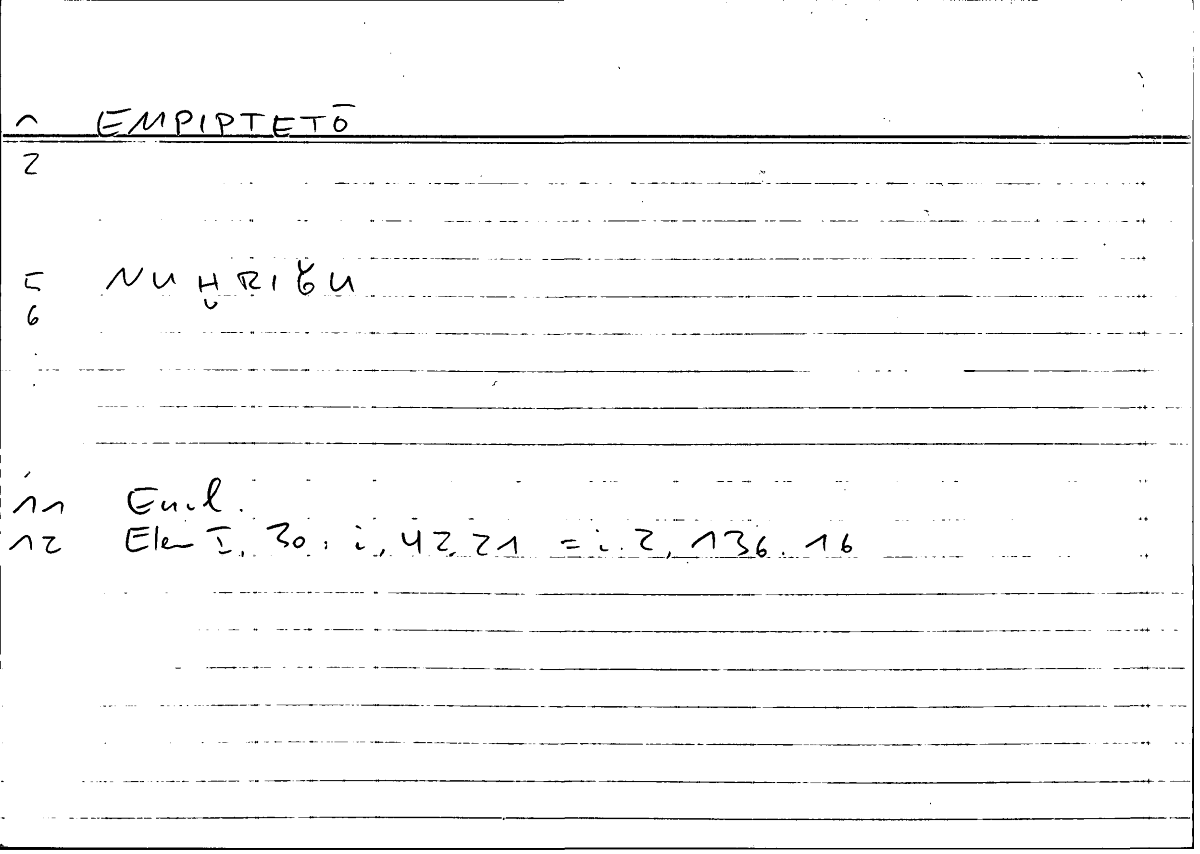 1 EMPIPTETŌ
2
5 NUḪRIǦU
6
11 Eucl.
12 Elem I, 30: i, 42,21 = i.2, 136.16